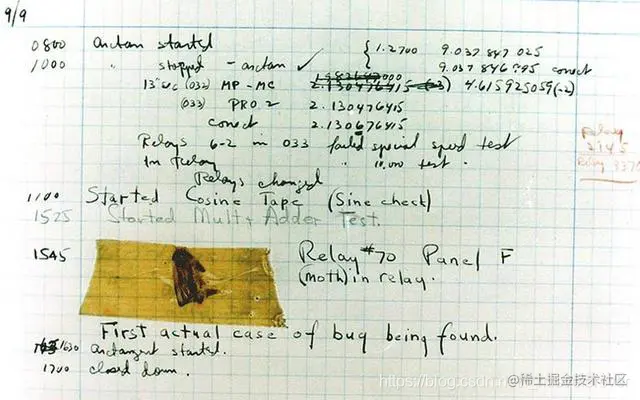 9/9
0800 Arctan started { 1.2700 9.037 847 025
1000 " stopped - arctan ✓ 9.037 846 995 conect
13"uc (032) MP - MC 2.130476415 (-3) 4.615925059(-2)
(033) PRO 2 2.130476415
conect 2.130676415
Relays 6-2 in 033 failed special speed test
In Relay " 10,000 test .
Relay
2145
Relay 3370
Relays changed
1100 Started Cosine Tape (Sine check)
1525 Started Mult + Adder Test.
1545 Relay #70 Panel F
(moth) in relay.
First actual case of bug being found.
1630 arctangent started.
1700 closed down .
https://blog.csdn.
@稀土掘金技术社区